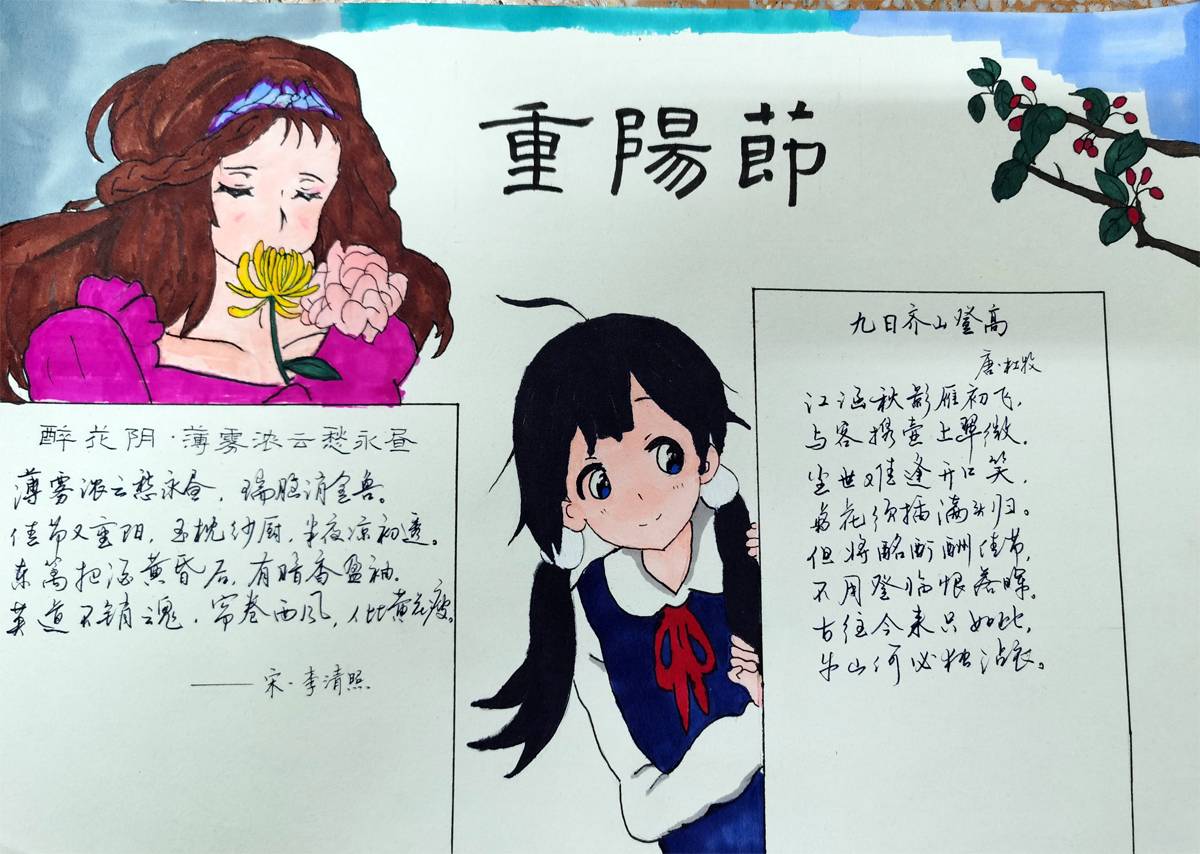 重陽節
醉花阴·薄雾浓云愁永昼
薄雾浓云愁永昼，瑞脑消金兽。
佳节又重阳，玉枕纱厨，半夜凉初透。
东篱把酒黄昏后，有暗香盈袖。
莫道不销魂，帘卷西风，人比黄花瘦。
——宋·李清照
九日齐山登高
唐·杜牧
江涵秋影雁初飞，
与客携壶上翠微。
尘世难逢开口笑，
菊花须插满头归。
但将酩酊酬佳节，
不用登临恨落晖。
古往今来只如此，
牛山何必独沾衣。